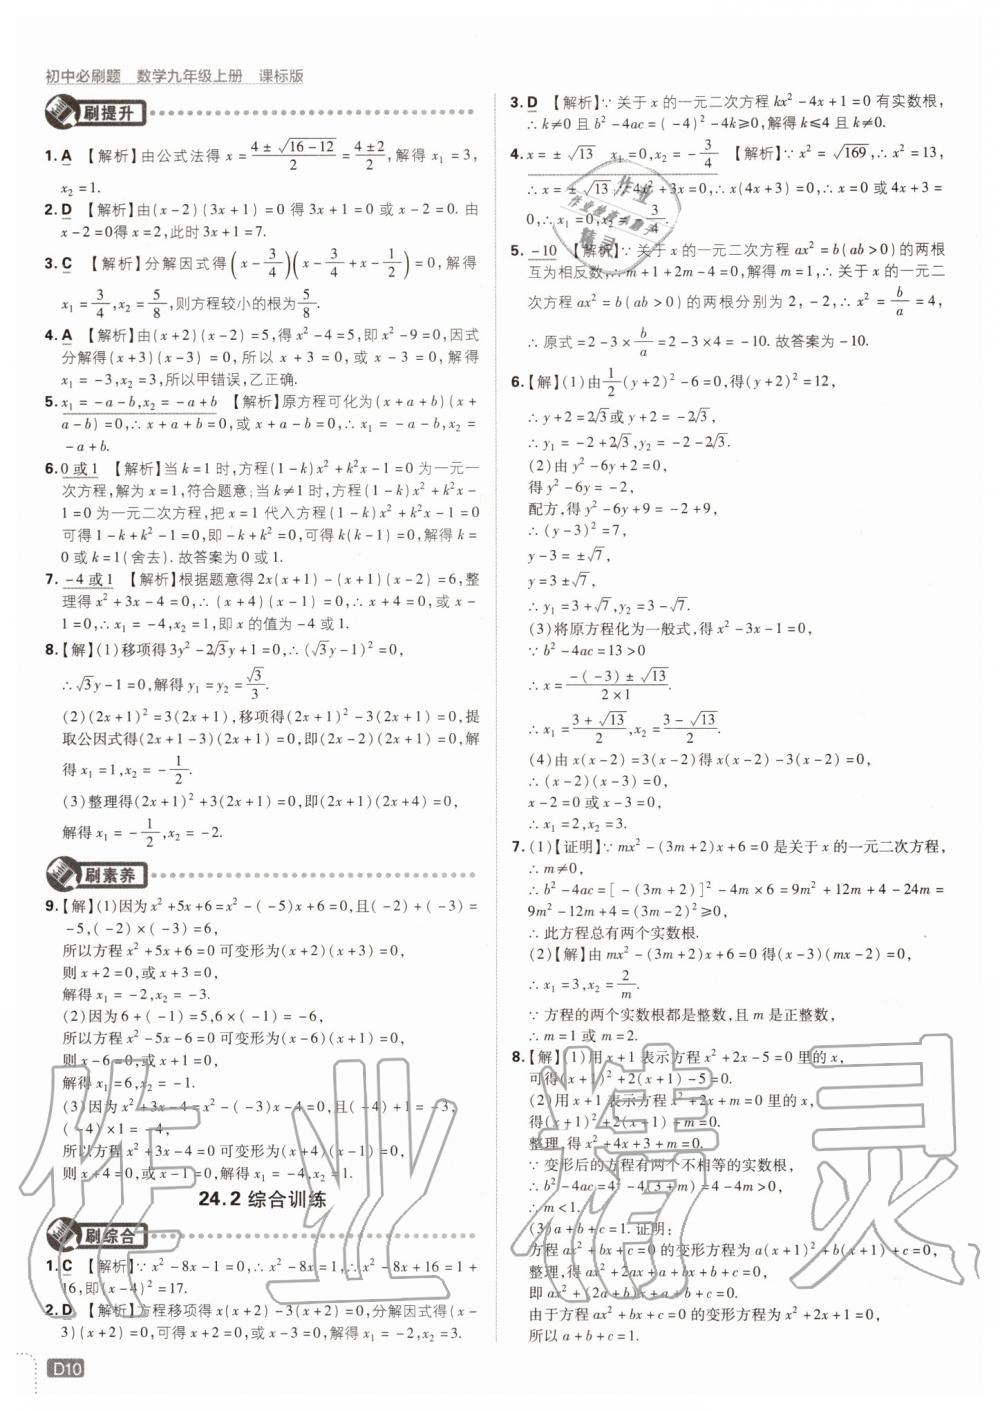 初中必刷题 数学九年级上册 课标版
刷提升
1. A 【解析】由公式法得 x = (4 ± √(16-12))/2 = (4±2)/2, 解得 x₁ = 3,
x₂ = 1.
2. D 【解析】由(x-2)(3x+1)=0 得 3x+1=0 或 x-2=0. 由
x-2=0得 x=2, 此时 3x+1=7.
3. C 【解析】分解因式得(x-3/4)(x-3/4+x-1/2)=0, 解得
x₁=3/4, x₂=5/8, 则方程较小的根为5/8.
4. A 【解析】由(x+2)(x-2)=5, 得 x²-4=5, 即 x²-9=0, 因式
分解得(x+3)(x-3)=0, 所以 x+3=0, 或 x-3=0, 解得
x₁=-3, x₂=3, 所以甲错误, 乙正确.
5. x₁=-a-b, x₂=-a+b 【解析】原方程可化为(x+a+b)(x+
a-b)=0, ∴x+a+b=0, 或 x+a-b=0, ∴x₁=-a-b, x₂=
-a+b.
6. 0 或 1 【解析】当 k=1 时, 方程(1-k)x²+k²x-1=0 为一元一
次方程, 解为 x=1, 符合题意; 当 k≠1 时, 方程(1-k)x²+k²x-
1=0为一元二次方程, 把 x=1 代入方程(1-k)x²+k²x-1=0
可得 1-k+k²-1=0, 即-k+k²=0, 可得 k(k-1)=0, 解得 k=
0 或 k=1(舍去). 故答案为 0 或 1.
7. -4 或 1 【解析】根据题意得 2x(x+1)-(x+1)(x-2)=6, 整
理得 x²+3x-4=0, ∴(x+4)(x-1)=0, ∴x+4=0 或 x-
1=0, ∴x₁=-4, x₂=1, 即 x 的值为-4 或 1.
8. 【解】(1)移项得 3y²-2√3y+1=0, ∴(√3y-1)²=0,
∴√3y-1=0, 解得 y₁=y₂=√3/3.
(2)(2x+1)²=3(2x+1), 移项得(2x+1)²-3(2x+1)=0, 提
取公因式得(2x+1-3)(2x+1)=0, 即(2x-2)(2x+1)=0, 解
得 x₁=1, x₂=-1/2.
(3)整理得(2x+1)²+3(2x+1)=0, 即(2x+1)(2x+4)=0,
解得 x₁=-1/2, x₂=-2.
刷素养
9. 【解】(1)因为 x²+5x+6=x²-(-5)x+6=0, 且(-2)+(-3)=
-5, (-2)×(-3)=6,
所以方程 x²+5x+6=0 可变形为(x+2)(x+3)=0,
则 x+2=0, 或 x+3=0,
解得 x₁=-2, x₂=-3.
(2)因为 6+(-1)=5, 6×(-1)=-6,
所以方程 x²-5x-6=0 可变形为(x-6)(x+1)=0,
则 x-6=0, 或 x+1=0,
解得 x₁=6, x₂=-1.
(3)因为 x²+3x-4=x²-(-3)x-4=0, 且(-4)+1=-3,
(-4)×1=-4,
所以方程 x²+3x-4=0 可变形为(x+4)(x-1)=0,
则 x+4=0, 或 x-1=0, 解得 x₁=-4, x₂=1.
24.2 综合训练
刷综合
1. C 【解析】∵x²-8x-1=0, ∴x²-8x=1, ∴x²-8x+16=1+
16, 即(x-4)²=17.
2. D 【解析】方程移项得 x(x-2)-3(x-2)=0, 分解因式得(x-
3)(x-2)=0, 可得 x-3=0 或 x-2=0, 解得 x₁=3, x₂=2.
D10
3. D 【解析】∵关于 x 的一元二次方程 kx²-4x+1=0 有实数根,
∴k≠0 且 b²-4ac=(-4)²-4k≥0, 解得 k≤4 且 k≠0.
4. x=±√13 x₁=0, x₂=-3/4 【解析】∵x²=√169, ∴x²=13,
∴x=±√13; ∵4x²+3x=0, ∴x(4x+3)=0, ∴x=0 或 4x+3=
0, ∴x₁=0, x₂=-3/4.
5. -10 【解析】∵关于 x 的一元二次方程 ax²=b(ab>0)的两根
互为相反数, ∴m+1+2m-4=0, 解得 m=1, ∴关于 x 的一元二
次方程 ax²=b(ab>0)的两根分别为 2, -2, ∴x²=b/a=4,
∴原式=2-3×b/a=2-3×4=-10. 故答案为-10.
6. 【解】(1)由1/2(y+2)²-6=0, 得(y+2)²=12,
∴y+2=2√3或 y+2=-2√3,
∴y₁=-2+2√3, y₂=-2-2√3.
(2)由 y²-6y+2=0,
得 y²-6y=-2,
配方, 得 y²-6y+9=-2+9,
∴(y-3)²=7,
y-3=±√7,
y=3±√7,
∴y₁=3+√7, y₂=3-√7.
(3)将原方程化为一般式, 得 x²-3x-1=0,
∵b²-4ac=13>0
∴x=(-(-3)±√13)/(2×1).
∴x₁=(3+√13)/2, x₂=(3-√13)/2.
(4)由 x(x-2)=3(x-2)得 x(x-2)-3(x-2)=0,
∴(x-2)(x-3)=0,
x-2=0 或 x-3=0,
∴x₁=2, x₂=3.
7. (1)【证明】∵mx²-(3m+2)x+6=0 是关于 x 的一元二次方程,
∴m≠0,
∴b²-4ac=[-(3m+2)]²-4m×6=9m²+12m+4-24m=
9m²-12m+4=(3m-2)²≥0,
∴此方程总有两个实数根.
(2)【解】由 mx²-(3m+2)x+6=0 得(x-3)(mx-2)=0,
∴x₁=3, x₂=2/m.
∵方程的两个实数根都是整数, 且 m 是正整数,
∴m=1 或 m=2.
8. 【解】(1)用 x+1 表示方程 x²+2x-5=0 里的 x,
可得(x+1)²+2(x+1)-5=0.
(2)用 x+1 表示方程 x²+2x+m=0 里的 x,
得(x+1)²+2(x+1)+m=0.
整理, 得 x²+4x+3+m=0.
∵变形后的方程有两个不相等的实数根,
∴b²-4ac=4²-4(3+m)>0,
∴m<1.
(3)a+b+c=1. 证明:
方程 ax²+bx+c=0 的变形方程为 a(x+1)²+b(x+1)+c=0,
整理, 得 ax²+2ax+a+bx+b+c=0,
即 ax²+(2a+b)x+a+b+c=0.
由于方程 ax²+bx+c=0 的变形方程为 x²+2x+1=0,
所以 a+b+c=1.
作业精灵